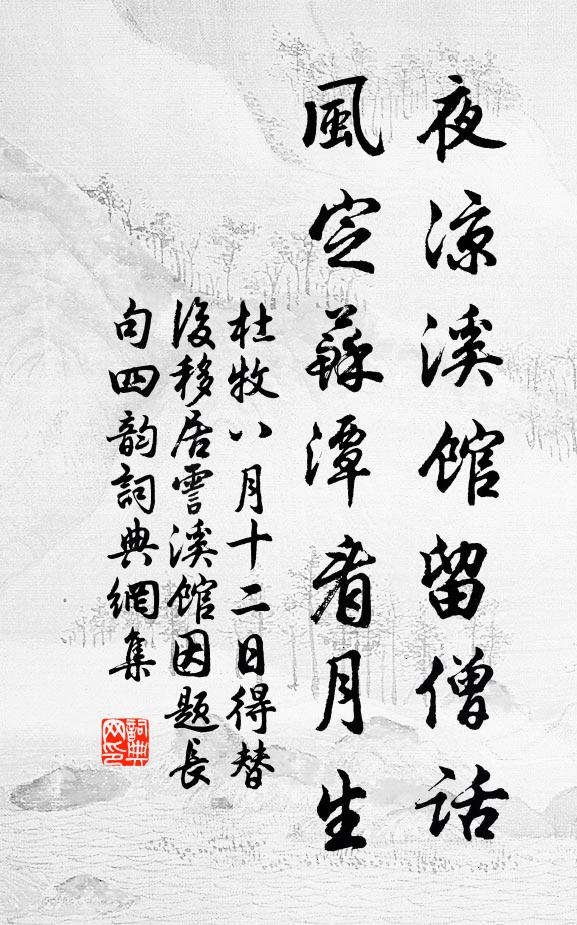 夜涼溪館留僧話
風定蘇潭看月生
杜牧八月十二日得替
後移居霅溪館因題長
句四韵詞典網集
詞典
网印